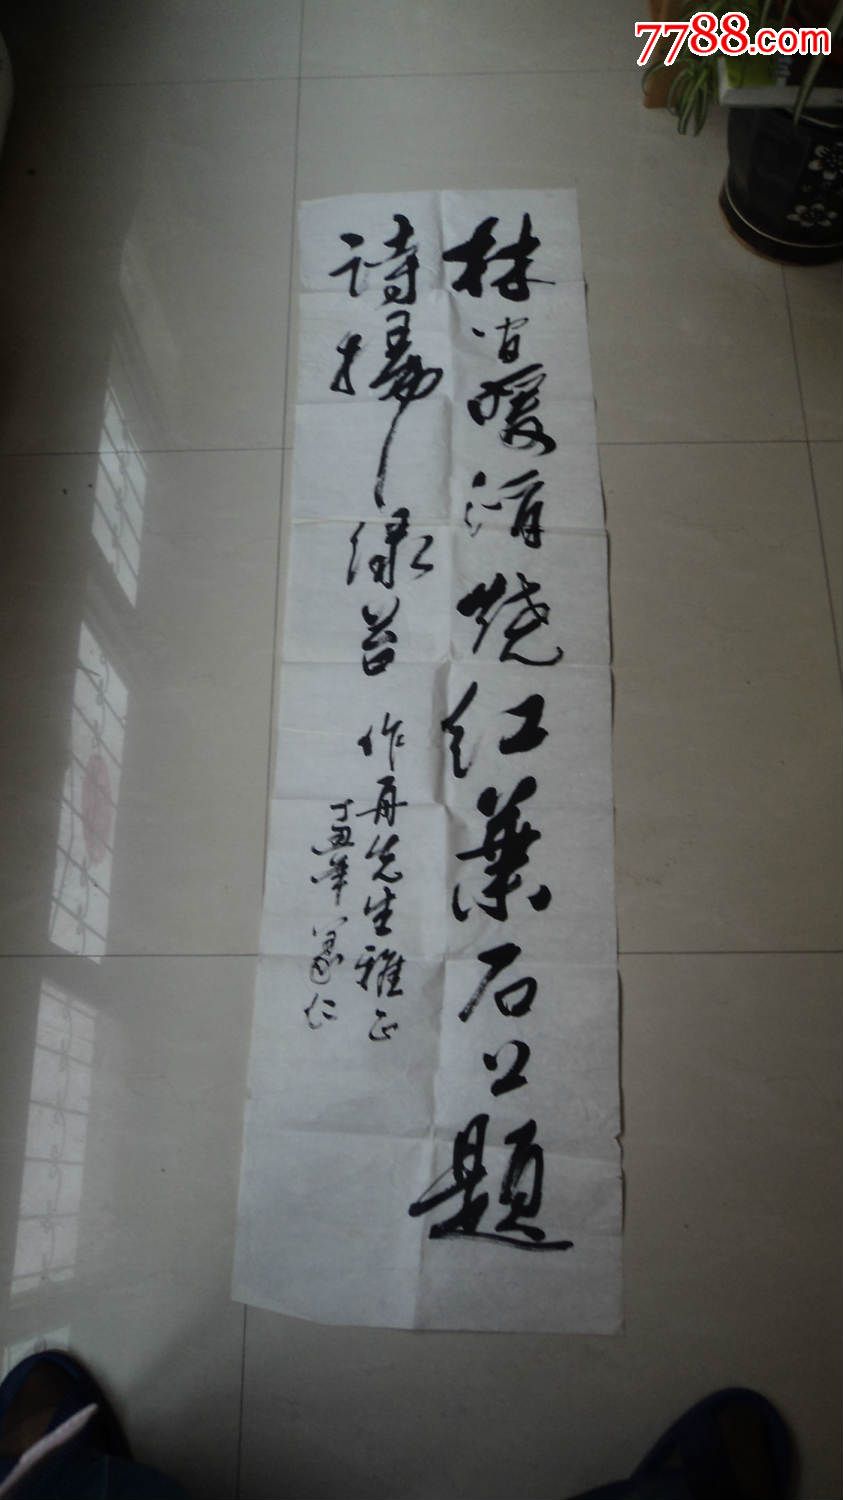 7788.com
林间暖酒烧红葉石上题
诗掃绿苔
作 先生雅正
丁丑年 仁